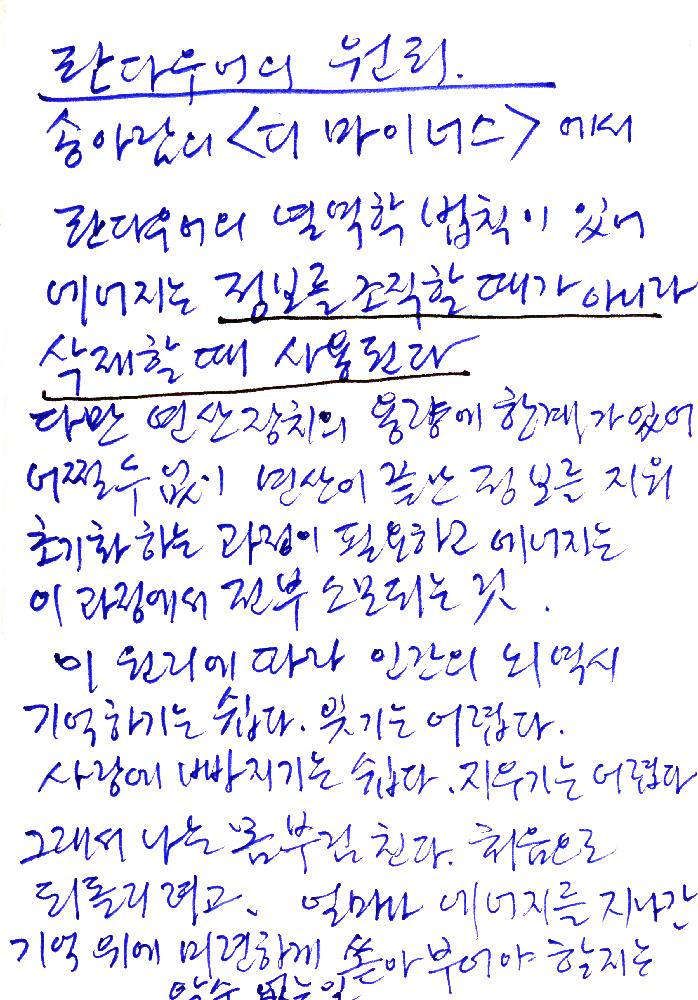 란다우어의 원리.
송아람의 <디 마이너스> 에서
란다우어의 열역학 법칙이 있어
에너지는 정보를 조직할 때가 아니라
삭제할 때 사용된다
다만 연산장치의 용량에 한계가 있어
어쩔 수 없이 연산이 끝난 정보를 지워
초기화하는 과정이 필요하고 에너지는
이 과정에서 전부 소모되는 것.
이 원리에 따라 인간의 뇌 역시
기억하기는 쉽다. 잊기는 어렵다.
사랑에 빠지기는 쉽다. 지우기는 어렵다
그래서 나는 몸부림 친다. 처음으로
되돌리려고. 얼마나 에너지를 지나간
기억 위에 미련하게 쏟아부어야 할지는
알 수 없는 일